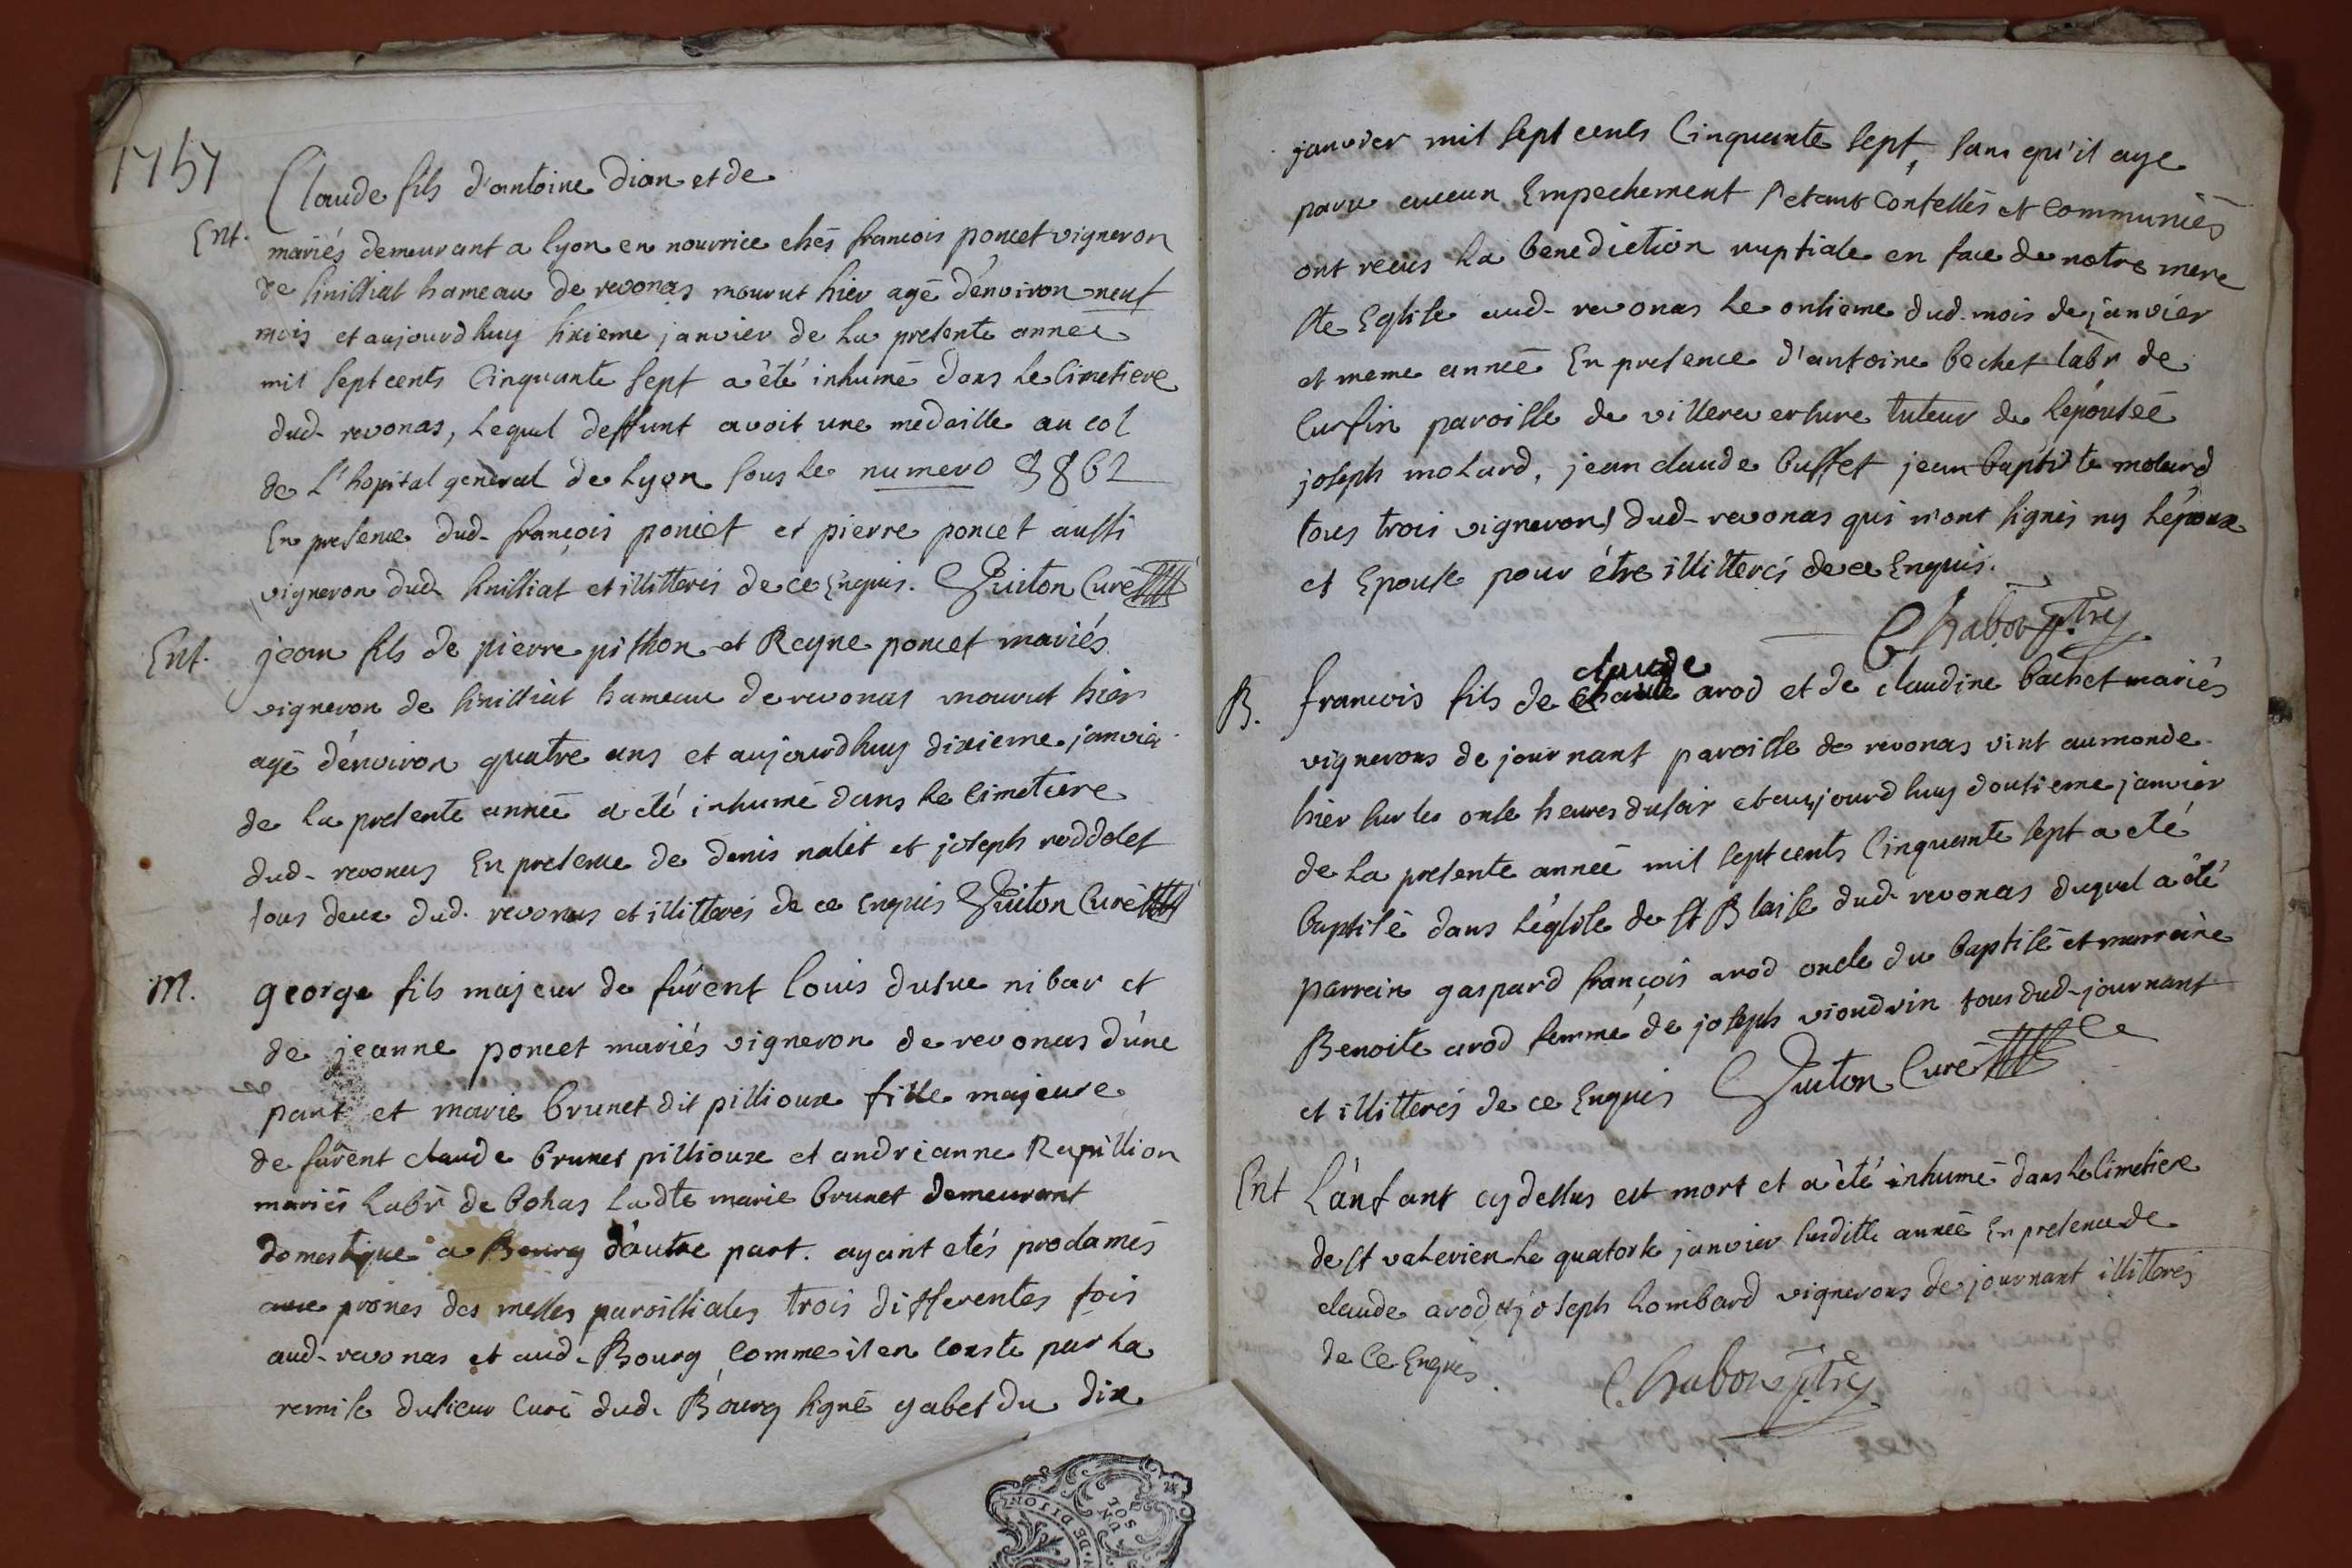 1757
Claude fils d'antoine dian et de
Ent. mariés demeurant a lyon en nourrice chés francois poncet vigneron
de sinissiat hameau de revonas mourut hier agé d'énviron neuf
mois et aujourdhuy sixieme janvier de la presente anneé
mil sept cents Cinquante sept a été inhumé dans le Cimetiere
dud. revonas, lequel deffunt avoit une medaille au col
de L'hopital general de lyon sous le numero 8862
En presence dud. françois poncet et pierre poncet aussi
vigneron dud. sinissiat et illitterés de ce Enquis. Guiton Curé
Ent. jean fils de pierre pithon et Reyne poncet mariés
vigneron de sinissiat hameau de revonas mourut hier
agé d'énviron quatre ans et aujourdhuy dixieme janvier
de la presente anneé a eté inhumé dans le Cimetiere
dud. revonas En presence de denis nalet et joseph roddolet
tous deux dud. revonas et illitterés de ce Enquis Guiton Curé
M. george fils majeur de fûrent louis dusue nibar et
de jeanne poncet mariés vigneron de revonas d'úne
part et marie brunet dit pillioux fille majeure
de fûrent claude brunet pillioux et andrianne Rapillion
mariés labr de bohas ladte marie brunet demeurant
domestique a Bourg d'áutre part. ayant etés proclamés
aux prônes des messes paroissiales trois differentes fois
aud. revonas et aud. Bourg Comme il en Conste par la
remise du sieur Curé dud. Bourg signé gabet du dix
janvier mil sept cents Cinquante sept, sans qu'il aye
paru aucun Empechement s'etant Confessés et Communiés
ont reçus la benediction nuptiale en face de notre mere
ste Eglise aud. revonas le onsieme dud. mois de janvier
et meme anneé En presence d'antoine bechet labr de
Cursin paroisse de villereversure tuteur de l'épouseé
joseph molard, jean claude buffet jean baptiste molard
tous trois vignerons dud. revonas qui n'ont signés ny l'époux
et Epouse pour être illitterés de ce Enquis.
Chabou ptre
B. francois fils de claude arod et de claudine bachet mariés
claude
vignerons de journant paroisse de revonas vint au monde
hier sur les onse heures du soir et aujourdhuy dousieme janvier
de la presente anneé mil sept cents Cinquante sept a eté
baptisé dans l'église de st Blaise dud. revonas duquel a été
parrein gaspard françois arod oncle du baptisé et marreine
Benoite arod femme de joseph vioudrin tous dud. journant
et illitterés de ce Enquis Guiton Curé
Ent L'ánfant cy dessus est mort et a été inhumé dans le Cimetiere
de st valerien le quatorse janvier susditte anneé En presence de
claude arod et joseph lombard vignerons de journant illitterés
de Ce Enquis.
Chabou ptre
UN
SOL
DE DIJON